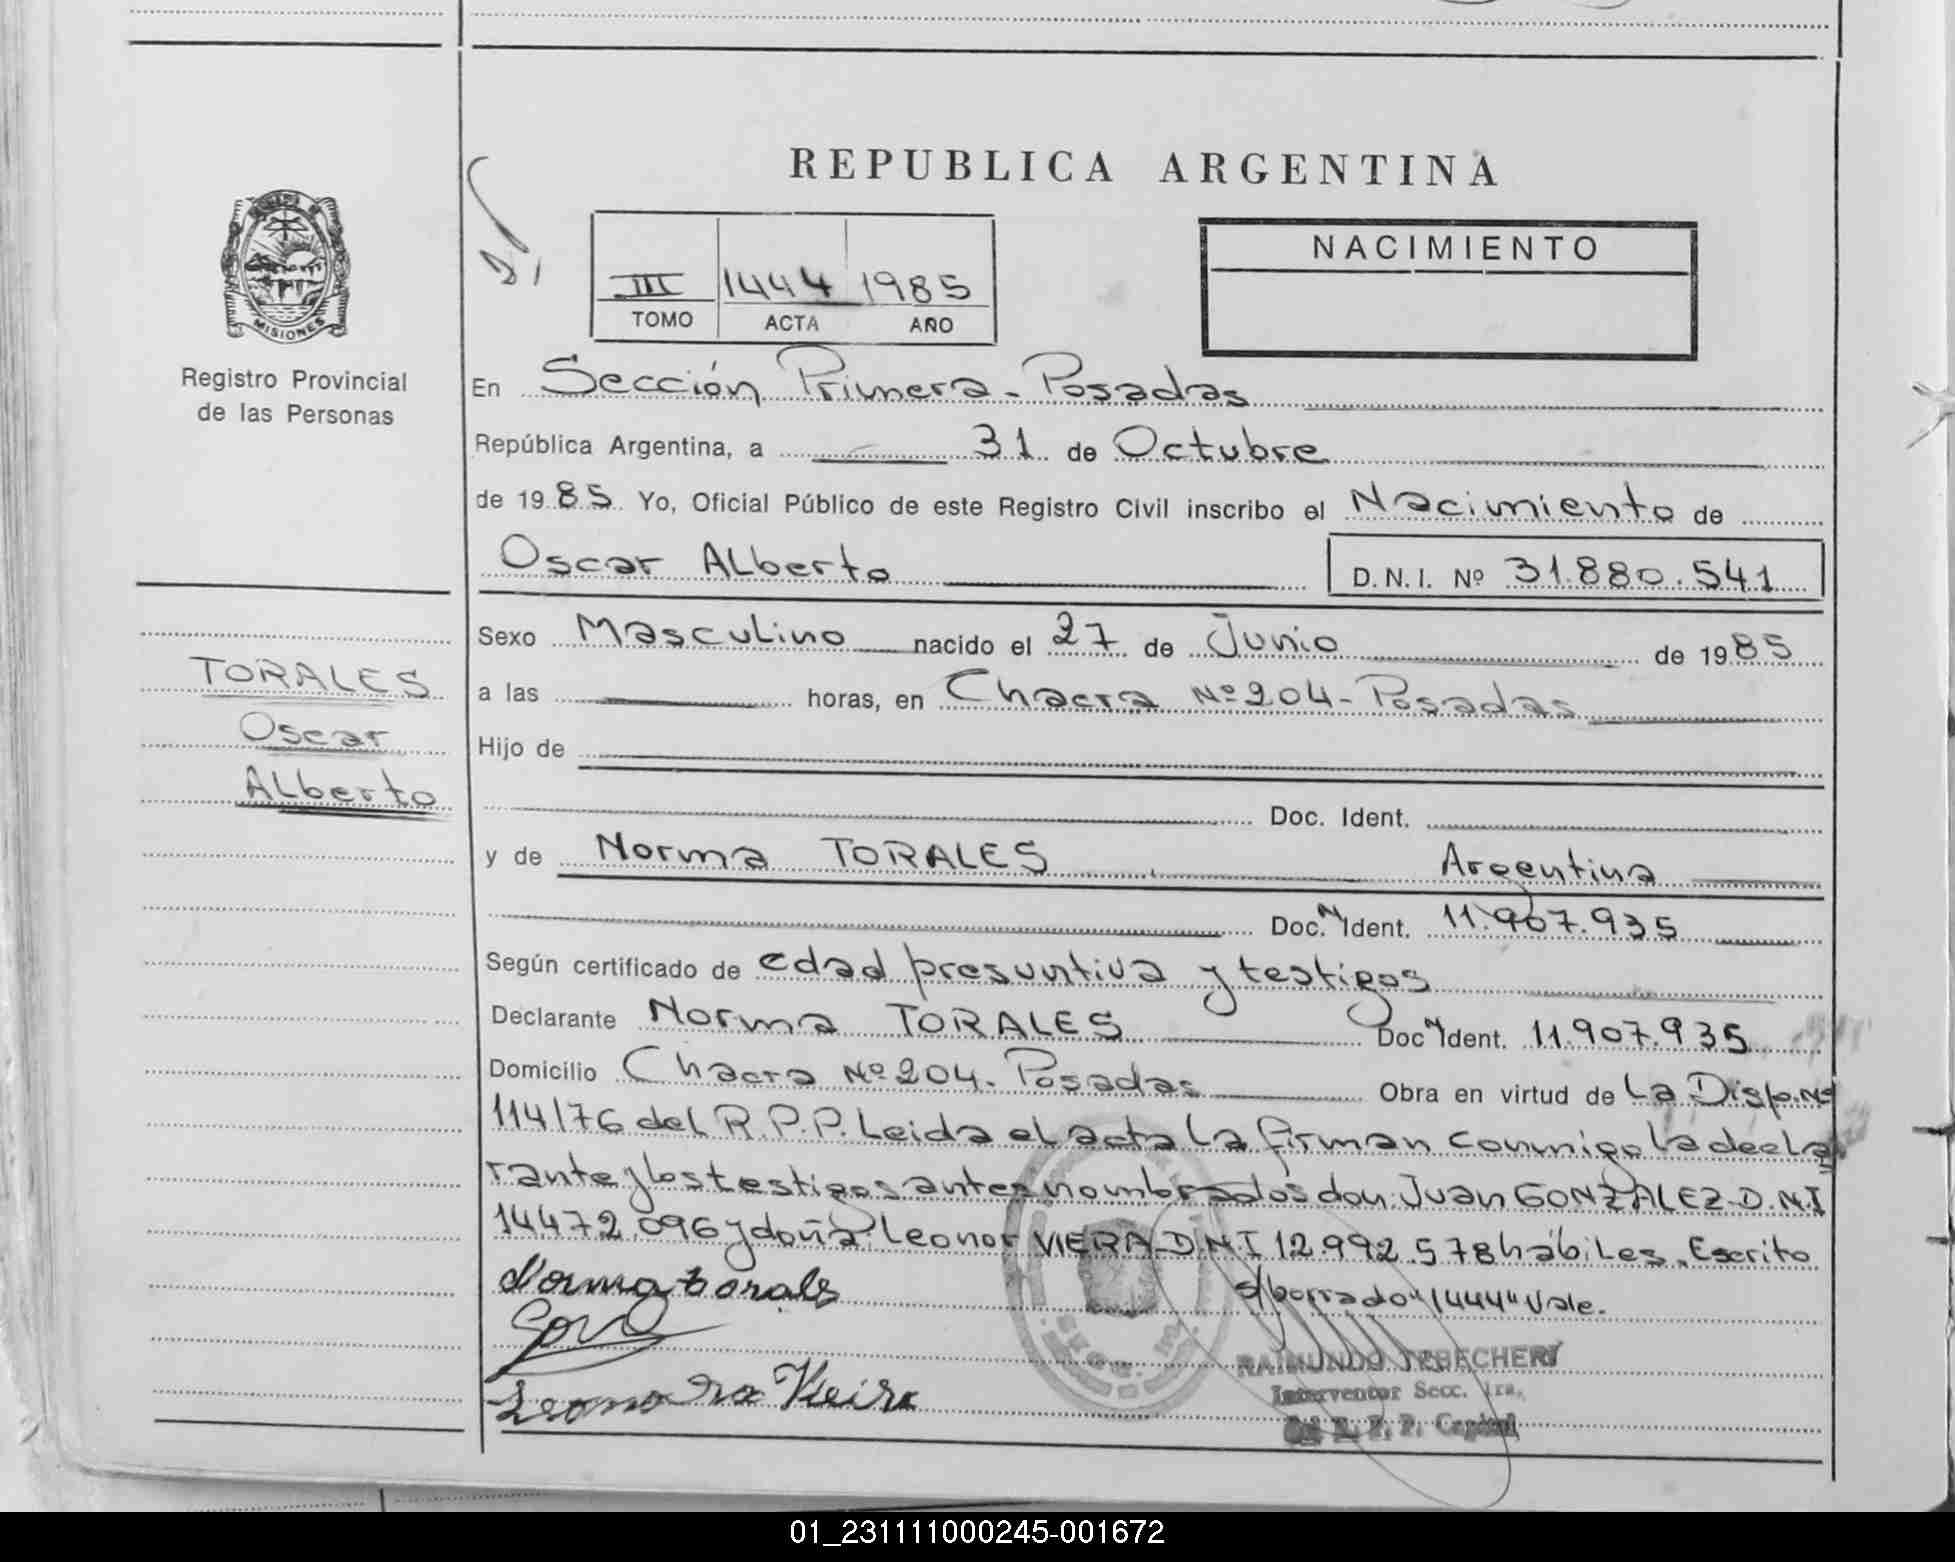 REPUBLICA ARGENTINA
NACIMIENTO
III 1444 1985
TOMO ACTA AÑO
MISIONES
Registro Provincial
de las Personas
En Sección Primera - Posadas
República Argentina, a 31 de Octubre
de 1985 Yo, Oficial Público de este Registro Civil inscribo el Nacimiento de
Oscar ALberto D.N.I. Nº 31.880.541
TORALES
Oscar
ALberto
Sexo Masculino nacido el 27 de Junio de 1985
a las horas, en Chacra Nº 204 - Posadas
Hijo de
Doc. Ident.
y de Norma TORALES Argentina
Doc. N Ident. 11.907.935
Según certificado de edad presuntiva y testigos
Declarante Norma TORALES Doc N Ident. 11.907.935
Domicilio Chacra Nº 204. Posadas Obra en virtud de La Disp. Nº
114/76 del R.P.P. Leida el acta La firman conmigo la decla
rante y los testigos antes nombrados don: Juan GONZALEZ D.N.I
14.472.096 y doña: Leonor VIERA D.N.I 12.992.578 hábiles. Escrito
s/borrado "1444" Vale.
Norma torales
Leonora Vieira
RAIMUNDO
Interventor Secc. 1ra.
R. P. P. Capital
01_231111000245-001672